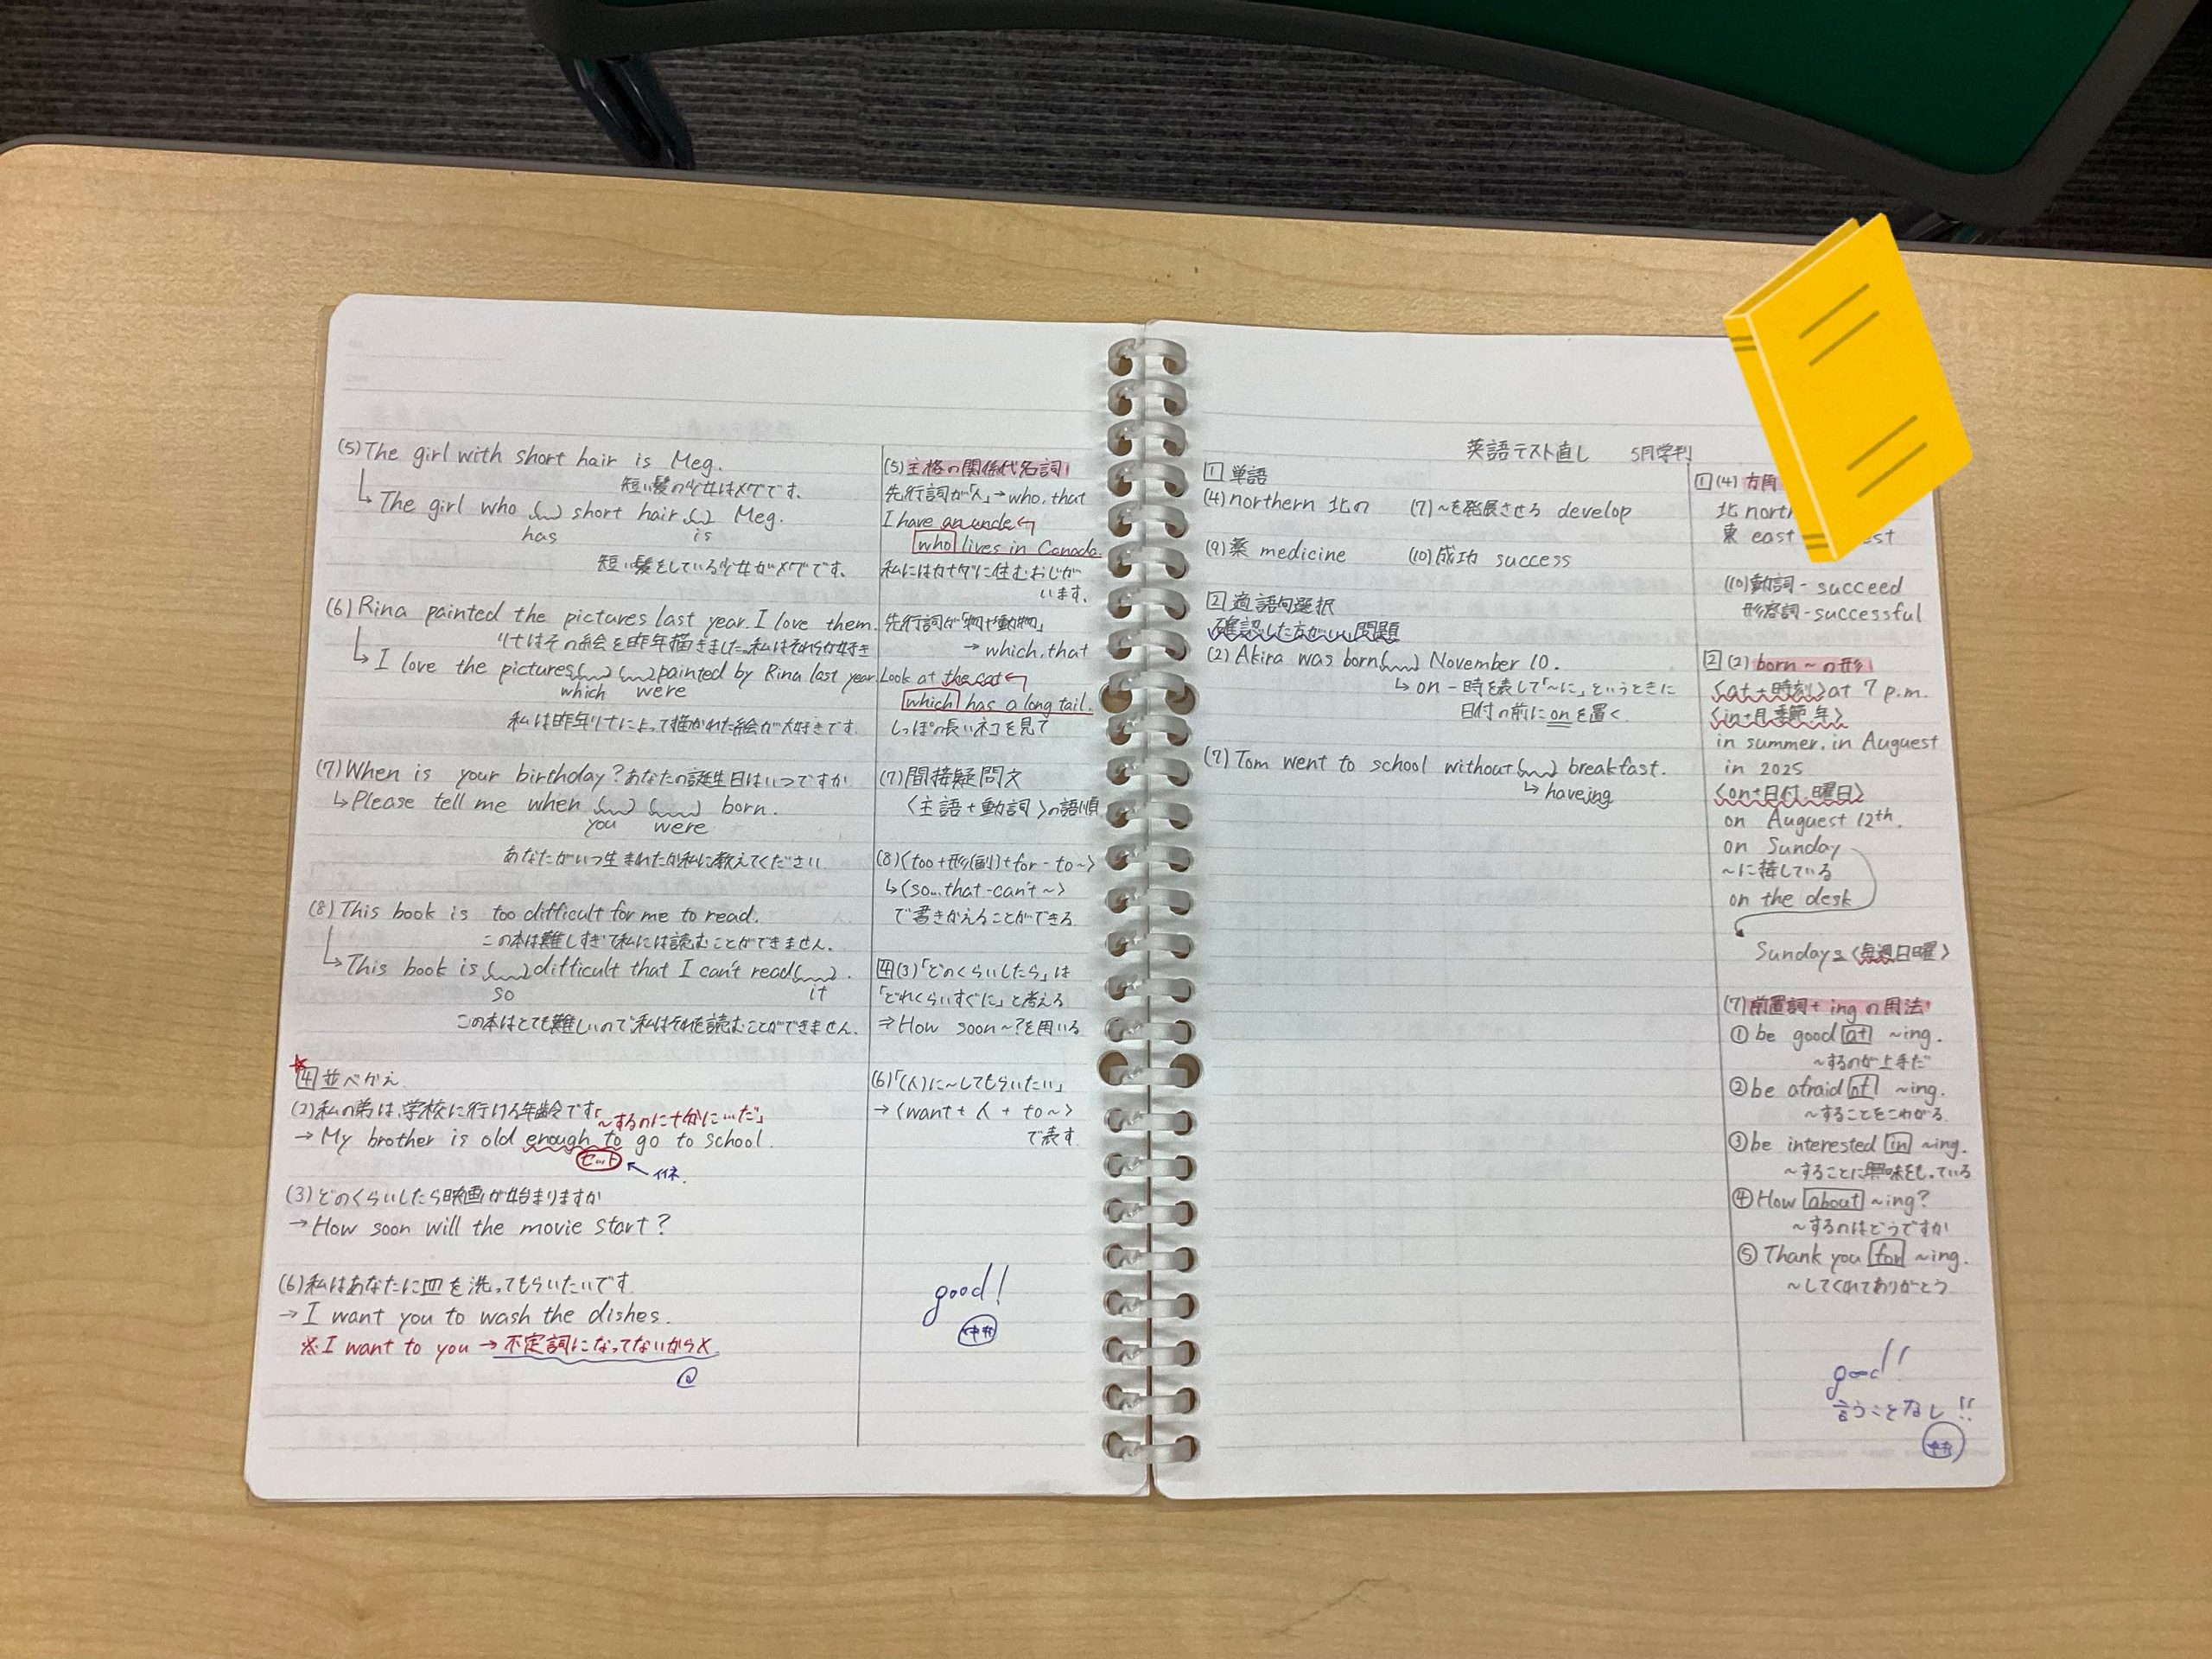 (5) The girl with short hair is Meg.
短い髪の少女はメグです。
↳ The girl who (  ) short hair (  ) Meg.
has is
短い髪をしている少女がメグです。
(6) Rina painted the pictures last year. I love them.
リナはその絵を昨年描きました。私はそれらが好き
↳ I love the pictures (  ) (  ) painted by Rina last year.
which were
私は昨年リナによって描かれた絵が大好きです。
(7) When is your birthday? あなたの誕生日はいつですか
↳ Please tell me when (  ) (  ) born.
you were
あなたがいつ生まれたか私に教えてください
(8) This book is too difficult for me to read.
この本は難しすぎて私には読むことができません。
↳ This book is (  ) difficult that I can't read (  ).
so it
この本はとても難しいので私はそれを読むことができません。
★
4 並べかえ
(2) 私の弟は、学校に行ける年齢です
「~するのに十分に…だ」
→ My brother is old enough to go to school.
セット ←
(3) どのくらいしたら映画が始まりますか
→ How soon will the movie start?
(6) 私はあなたに皿を洗ってもらいたいです
→ I want you to wash the dishes.
※ I want to you → 不定詞になってないから×
(5) 主格の関係代名詞
先行詞が「人」→ who, that
I have an uncle
who lives in Canada.
私にはカナダに住むおじが
います。
先行詞が「物や動物」
→ which, that
Look at the cat
which has a long tail.
しっぽの長いネコを見て
(7) 間接疑問文
〈主語+動詞〉の語順
(8) 〈too+形(副)+for - to~〉
↳ 〈so...that - can't ~〉
で書きかえることができる
4 (3) 「どのくらいしたら」は
「どれくらいすぐに」と考える
⇒ How soon ~? を用いる
(6) 「(人)に~してもらいたい」
→ 〈want + 人 + to ~〉
で表す
good!
英語テスト直し 5月学判
1 単語
(4) northern 北の (7) ~を発展させる develop
(9) 薬 medicine (10) 成功 success
2 適語句選択
確認した方がいい問題
(2) Akira was born (  ) November 10.
↳ on - 時を表して「~に」というときに
日付の前に on を置く
(7) Tom went to school without (  ) breakfast.
↳ haveing
1 (4) 方角
北 north
東 east
(10) 動詞 - succeed
形容詞 - successful
2 (2) born ~ の形
〈at + 時刻〉 at 7 p.m.
〈in + 月.季節.年〉
in summer. in Auguest
in 2025
〈on + 日付.曜日〉
on Auguest 12th.
on Sunday
~に接している
on the desk
Sundays 〈毎週日曜〉
(7) 前置詞 + ing の用法
① be good at ~ing.
~するのが上手だ
② be afraid of ~ing.
~することをこわがる
③ be interested in ~ing.
~することに興味をもっている
④ How about ~ing?
~するのはどうですか
⑤ Thank you for ~ing.
~してくれてありがとう
good!!
言うことなし!!